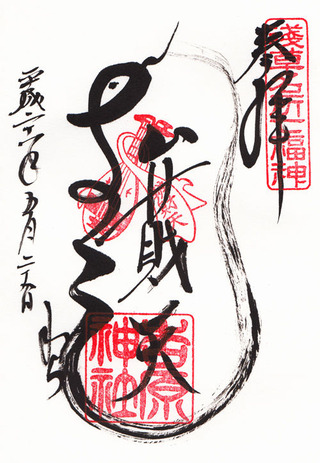 奉拝
淺草名所七福神
弁財天
吉原神社
平成二十六年五月二十六日